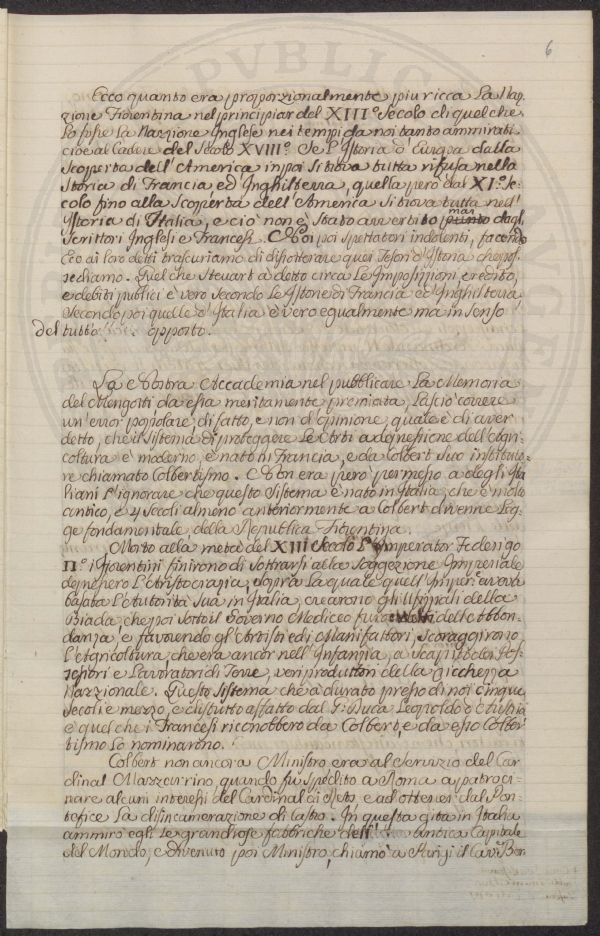 6
Ecco quanto era proporzionalmente piu ricca La Naz,
zione Fiorentina nel principiar del XIII.º Secolo di quel che
Lo fosse La Nazzione Inglese nei tempi da noi tanto ammirati
cioè al Cadere del Secolo XVIII.º Se l'Istoria d'Europa dalla
Scoperta dell'America in poi si trova tutta rifusa nella
Storia di Francia ed Inghilterra, quella però dal XI.º Se,
colo fino alla Scoperta dell'America si trova tutta nell'
Istoria di Italia, e ciò non è Stato avvertito mai dagl,
Scrittori Inglesi e Francesi. Noi poi Spettatori indolenti, facendo
Eco ai loro detti trascuriamo di disotterare quei Tesori d'Istoria che pos,
sediamo. Quel che Steuart à detto circa Le Imposizioni, credito,
e debiti publici è vero Secondo Le Istorie di Francia e d'Inghilterra,
Secondo poi quelle d'Italia è vero egualmente ma in Senso
del tutto opposto.
La Vostra Accademia nel pubblicare La Memoria
del Mengotti da essa meritamente premiata, Lasciò correre
un'error popolare di fatto, e non d'opinione, quale è di aver
detto, che il Sistema di proteggere Le Arti a depressione dell'Agri,
coltura è moderno, è nato in Francia, e da Colbert Suo instituto,
re chiamato Colbertismo. Non era però permesso a degli Ita
liani L'ignorare che questo Sistema è nato in Italia, che è molto
antico, e 4 Secoli almeno anteriormente a Colbert divenne Leg,
ge fondamentale della Republica Fiorentina.
Morto alla metà del XIII Secolo L'Imperator Federigo
II.º i Fiorentini finirono di Sottrarsi alla Soggezione Imperiale
depressero L'Aristocrazia, sopra La quale quell'Imper.e aveva
basata L'Autorità Sua in Italia, crearono gli Ufiziali della
Biada, che poi Sotto il Governo Mediceo furo detti dell'Abbon,
danza, e favorendo gl'Artisti ed i Manifattori, Scoraggirono
L'Agricoltura, che era ancor nell'Infanzia, a Scapito dei Pos,
sessori e Lavoratori di Terre, veri produttori della ricchezza
Nazzionale. Questo Sistema che à durato presso di noi cinque
Secoli e mezzo, e distrutto affatto dal G: Duca Leopoldo d'Austria
è quel che i Francesi riconobbero da Colbert, e da esso Colber
tismo Lo nominarono.
Colbert non ancora Ministro era al Servizio del Car
dinal Mazzurrino quando fu Spedito a Roma a patroci,
nare alcuni interessi del Cardinale di Retz, e ad ottener dal Pon,
tefice La disincamerazione di Castro. In questa gita in Italia
ammirò egli Le grandiose fabbriche dell' antica Capitale
del Mondo, e divenuto poi Ministro, chiamò a Parigi il Cav.r Ber